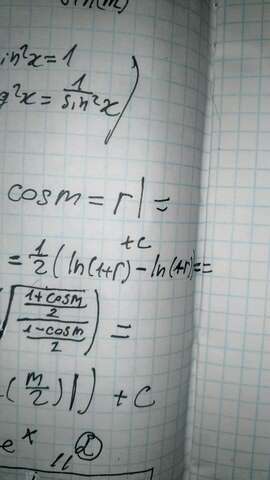 sin(m)
in²x = 1
g²x = 1/sin²x )
cosm = r | =
= 1/2 ( ln(1+r) - ln(1+r) +c ==
√((1+cosm)/2 / (1-cosm)/2) ) =
( m/2 ) | ) + c
e^x